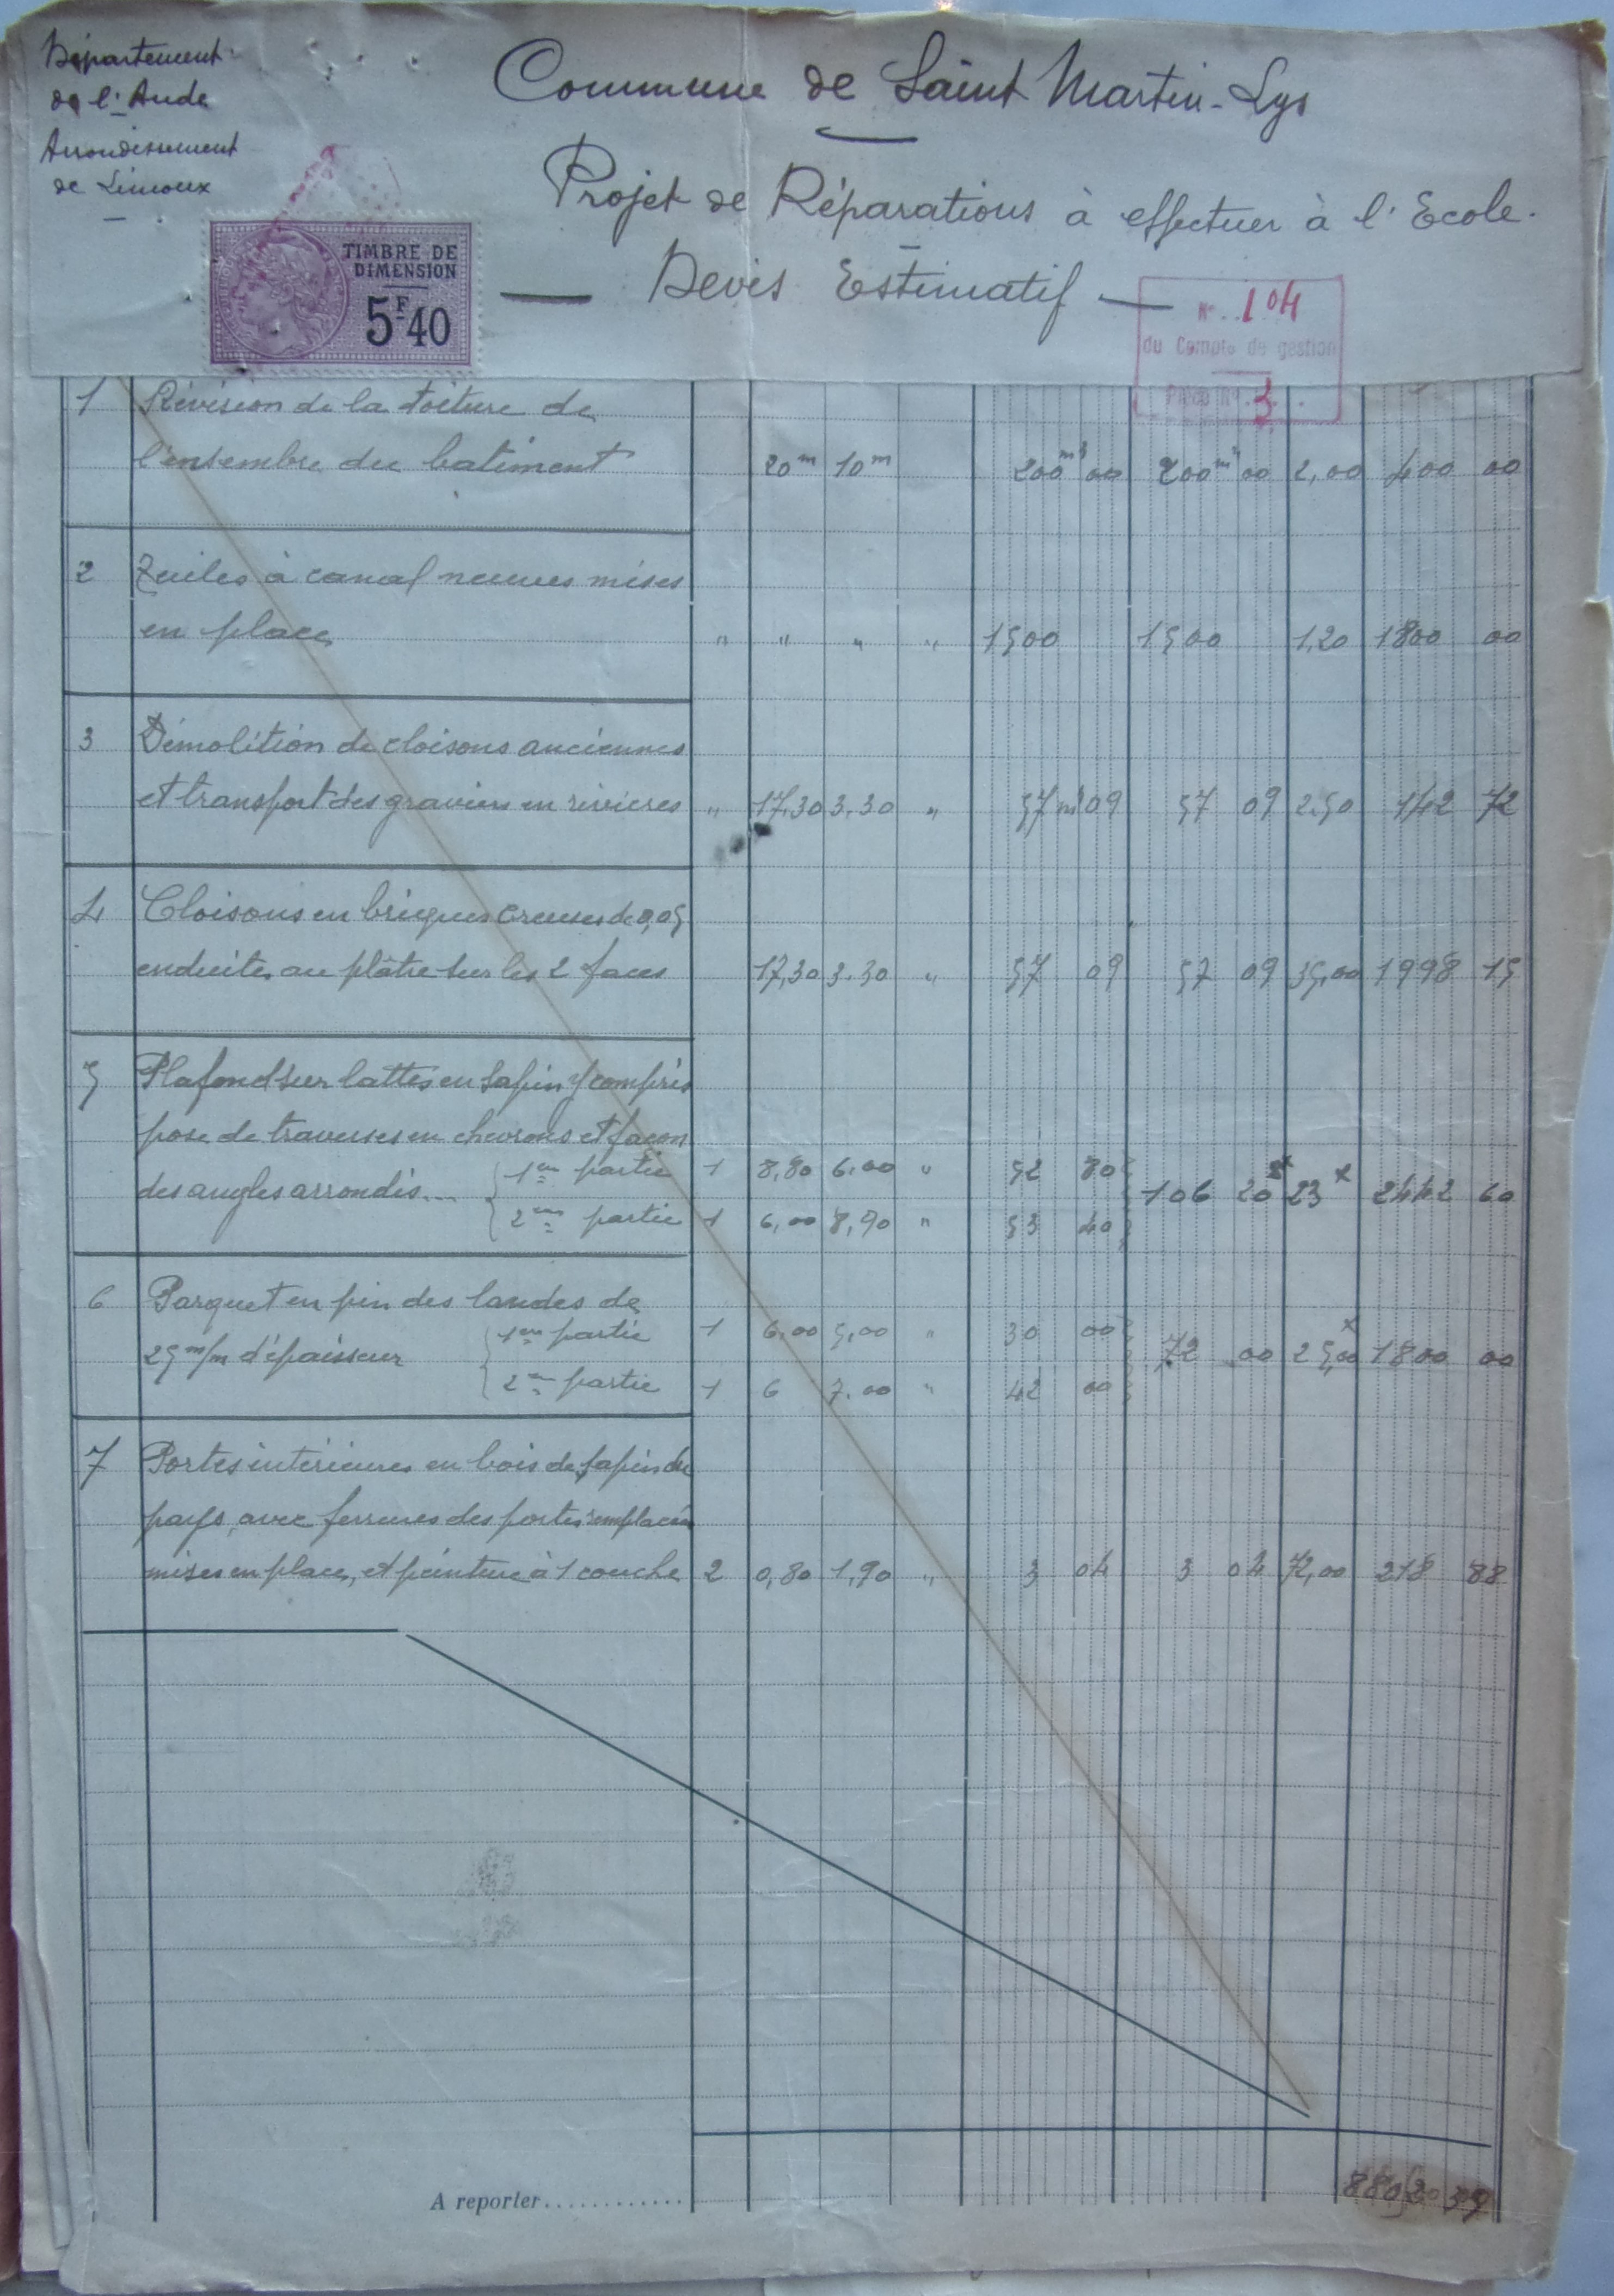 Département
de l'Aude
Arrondissement
de Limoux
Commune de Saint Martin-Lys
Projet de Réparations à effectuer à l'Ecole.
Devis Estimatif
TIMBRE DE
DIMENSION
5F40
N° 104
du Compte de gestion
Pièce N° 3
1 Révision de la toiture de
l'ensembre du batiment 20m 10m 200m² 00 200m² 00 2,00 400 00
2 Tuiles à canal neuves mises
en place " " " " 1500 1500 1,20 1800 00
3 Démolition de cloisons anciennes
et transport des graviers en rivières " 17,30 3.30 " 57m²09 57 09 2.50 142 72
4 Cloisons en briques creuses de 0,05
enduites au plâtre sur les 2 faces 17,30 3.30 " 57 09 57 09 35,00 1998 15
5 Plafond sur lattes en sapin y compris
pose de traverses en chevrons et façon
des angles arrondis... 1ère partie 1 8,80 6.00 " 52 80 106 20 23 2442 60
2ème partie 1 6,00 8,90 " 53 40
6 Parquet en pin des landes de
25 m/m d'épaisseur 1ère partie 1 6,00 5,00 " 30 00 72 00 25,00 1800 00
2me partie 1 6 7.00 " 42 00
7 Portes intérieures en bois de sapin du
pays, avec ferrures des portes remplacées
mises en place, et peinture à 1 couche 2 0,80 1,90 " 3 04 3 04 72,00 218 88
A reporter............ 8802 35